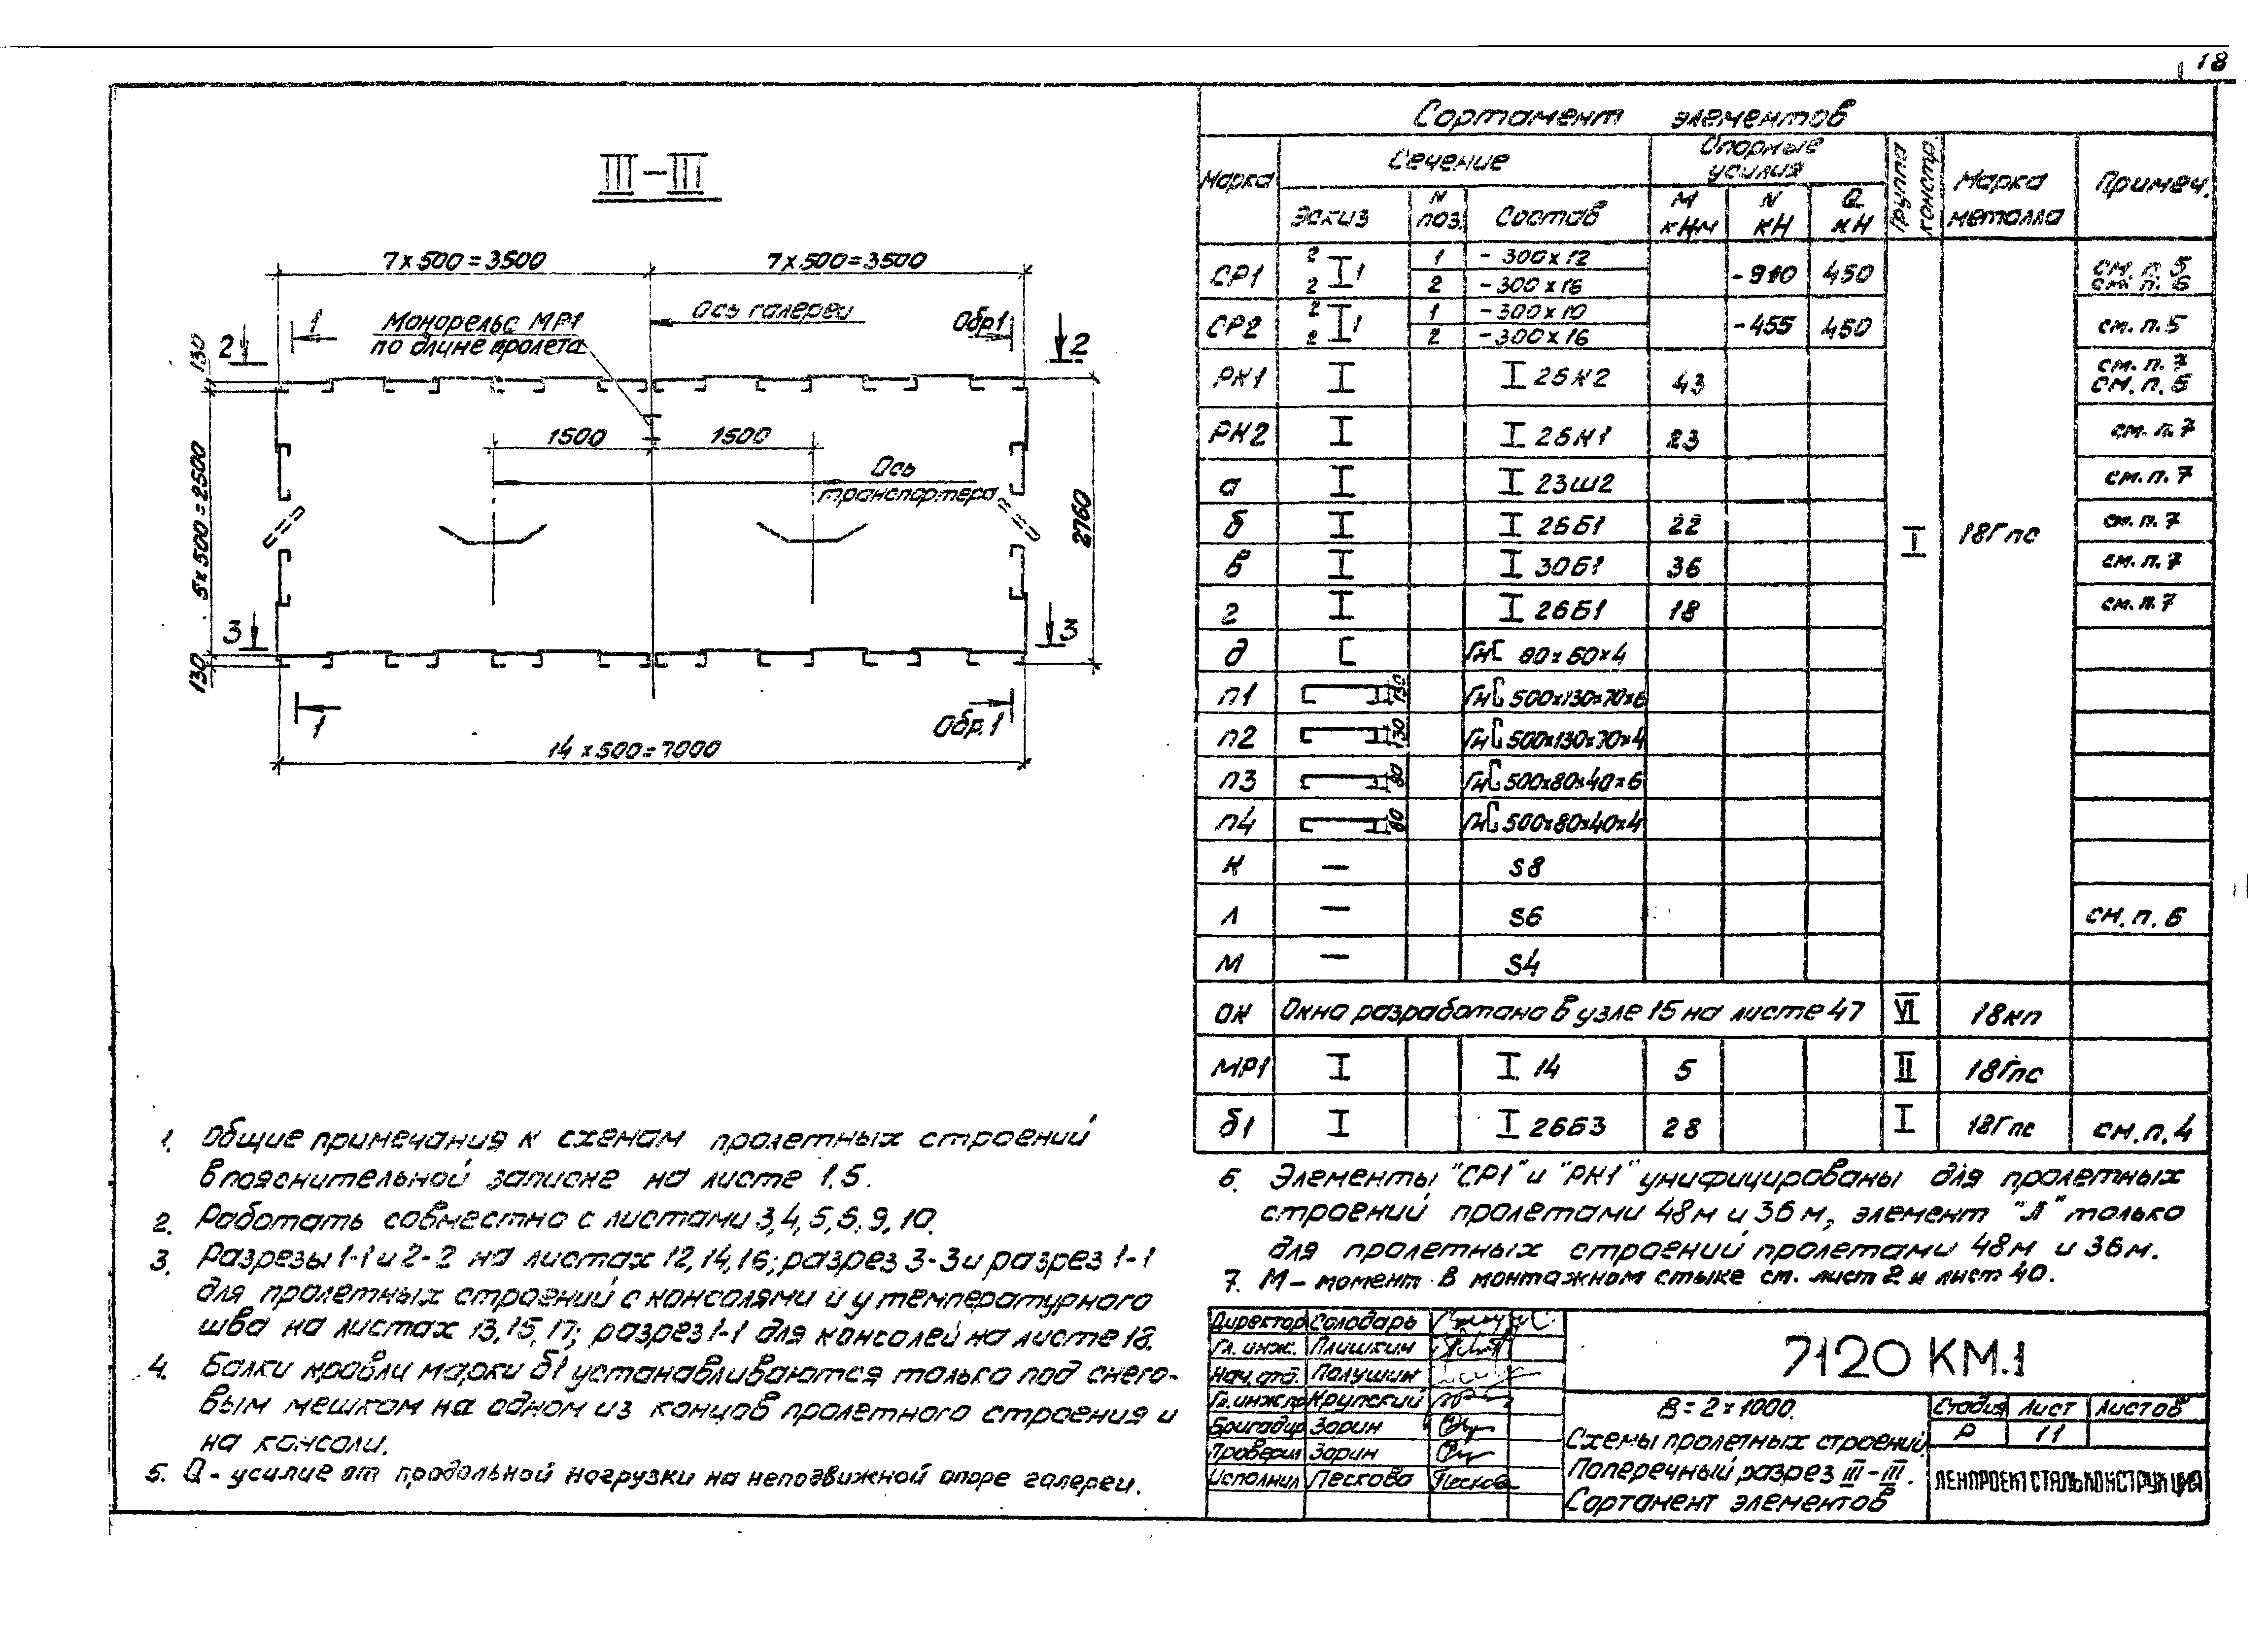 18
III–III
7×500=3500
7×500=3500
Ось галереи
Монорельс МР1
по длине пролета
1
Обр.1
2
2
130
5×500=2500
130
1500
1500
Ось
транспортера
2760
3
3
1
Обр.1
14×500=7000
Сортамент элементов
Марка
Сечение
Опорные усилия
Группа констр.
Марка металла
Примеч.
Эскиз
N поз.
Состав
М кНм
N кН
Q кН
СР1 2 2 1 1 -300×12 -910 450 см. п. 5
2 -300×16 см. п. 6
СР2 2 2 1 1 -300×10 -455 450 см. п. 5
2 -300×16
РК1 I I 26К2 43 см. п. 7
см. п. 6
РК2 I I 26К1 23 см. п. 7
а I I 23Ш2 см. п. 7
б I I 26Б1 22 см. п. 7
I 18Гпс
в I I 30Б1 36 см. п. 7
г I I 26Б1 18 см. п. 7
д [ Гн[ 80×60×4
п1 130 Гн[ 500×130×70×6
п2 130 Гн[ 500×130×70×4
п3 80 Гн[ 500×80×40×6
п4 80 Гн[ 500×80×40×4
К — S8
Л — S6 см. п. 6
М — S4
ОК Окно разработано в узле 15 на листе 47 VI 18кп
МР1 I I 14 5 II 18Гпс
б1 I I 26Б3 28 I 18Гпс см. п. 4
1. Общие примечания к схемам пролетных строений
в пояснительной записке на листе 1.5.
2. Работать совместно с листами 3,4,5,6,9,10.
3. Разрезы 1-1 и 2-2 на листах 12,14,16; разрез 3-3 и разрез 1-1
для пролетных строений с консолями и у температурного
шва на листах 13,15,17; разрез 1-1 для консолей на листе 18.
4. Балки кровли марки б1 устанавливаются только под снего-
вым мешком на одном из концов пролетного строения и
на консоли.
5. Q - усилие от продольной нагрузки на неподвижной опоре галереи.
6. Элементы "СР1" и "РК1" унифицированы для пролетных
строений пролетами 48м и 36м, элемент "Л" только
для пролетных строений пролетами 48м и 36м.
7. М – момент в монтажном стыке см. лист 2 и лист 40.
Директор Солодарь
Гл. инж. Плишкин
Нач. отд. Полушин
Гл. инж. пр Крупский
Бригадир Зорин
Проверил Зорин
Исполнил Пескова Пескова
7120 КМ.1
В = 2×1000.
Схемы пролетных строений.
Поперечный разрез III–III.
Сортамент элементов
Стадия Лист Листов
Р 11
ЛЕНПРОЕКТСТАЛЬКОНСТРУКЦИЯ